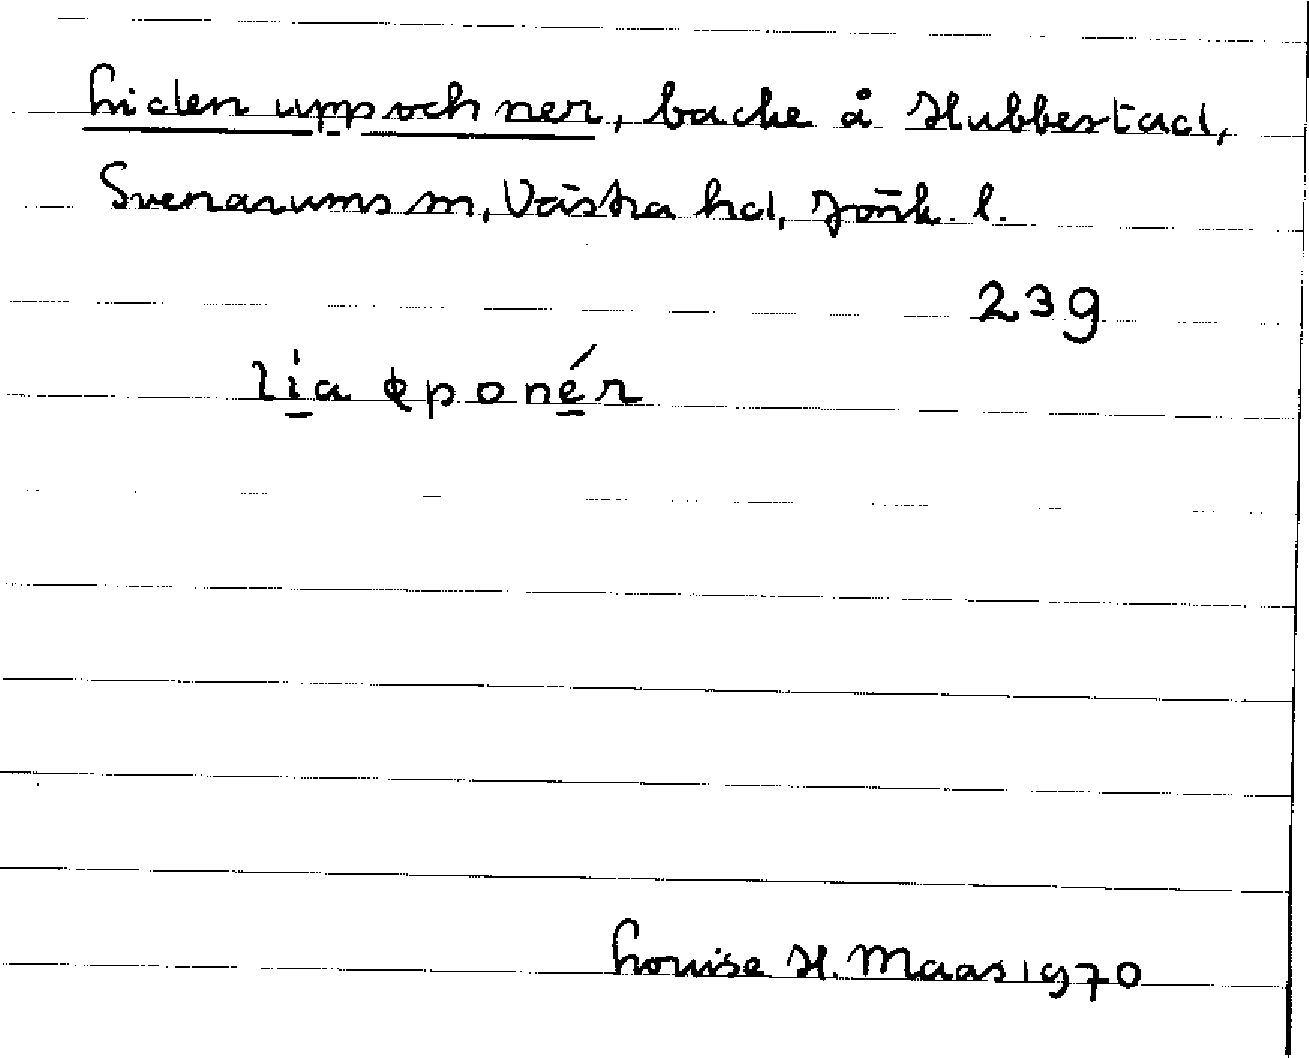 Liden upp och ner, backe å Hubbestad,
Svenarums sn, Västra hd, Jönk. l.
239
lia ɵponér
Louise H. Maas 1970